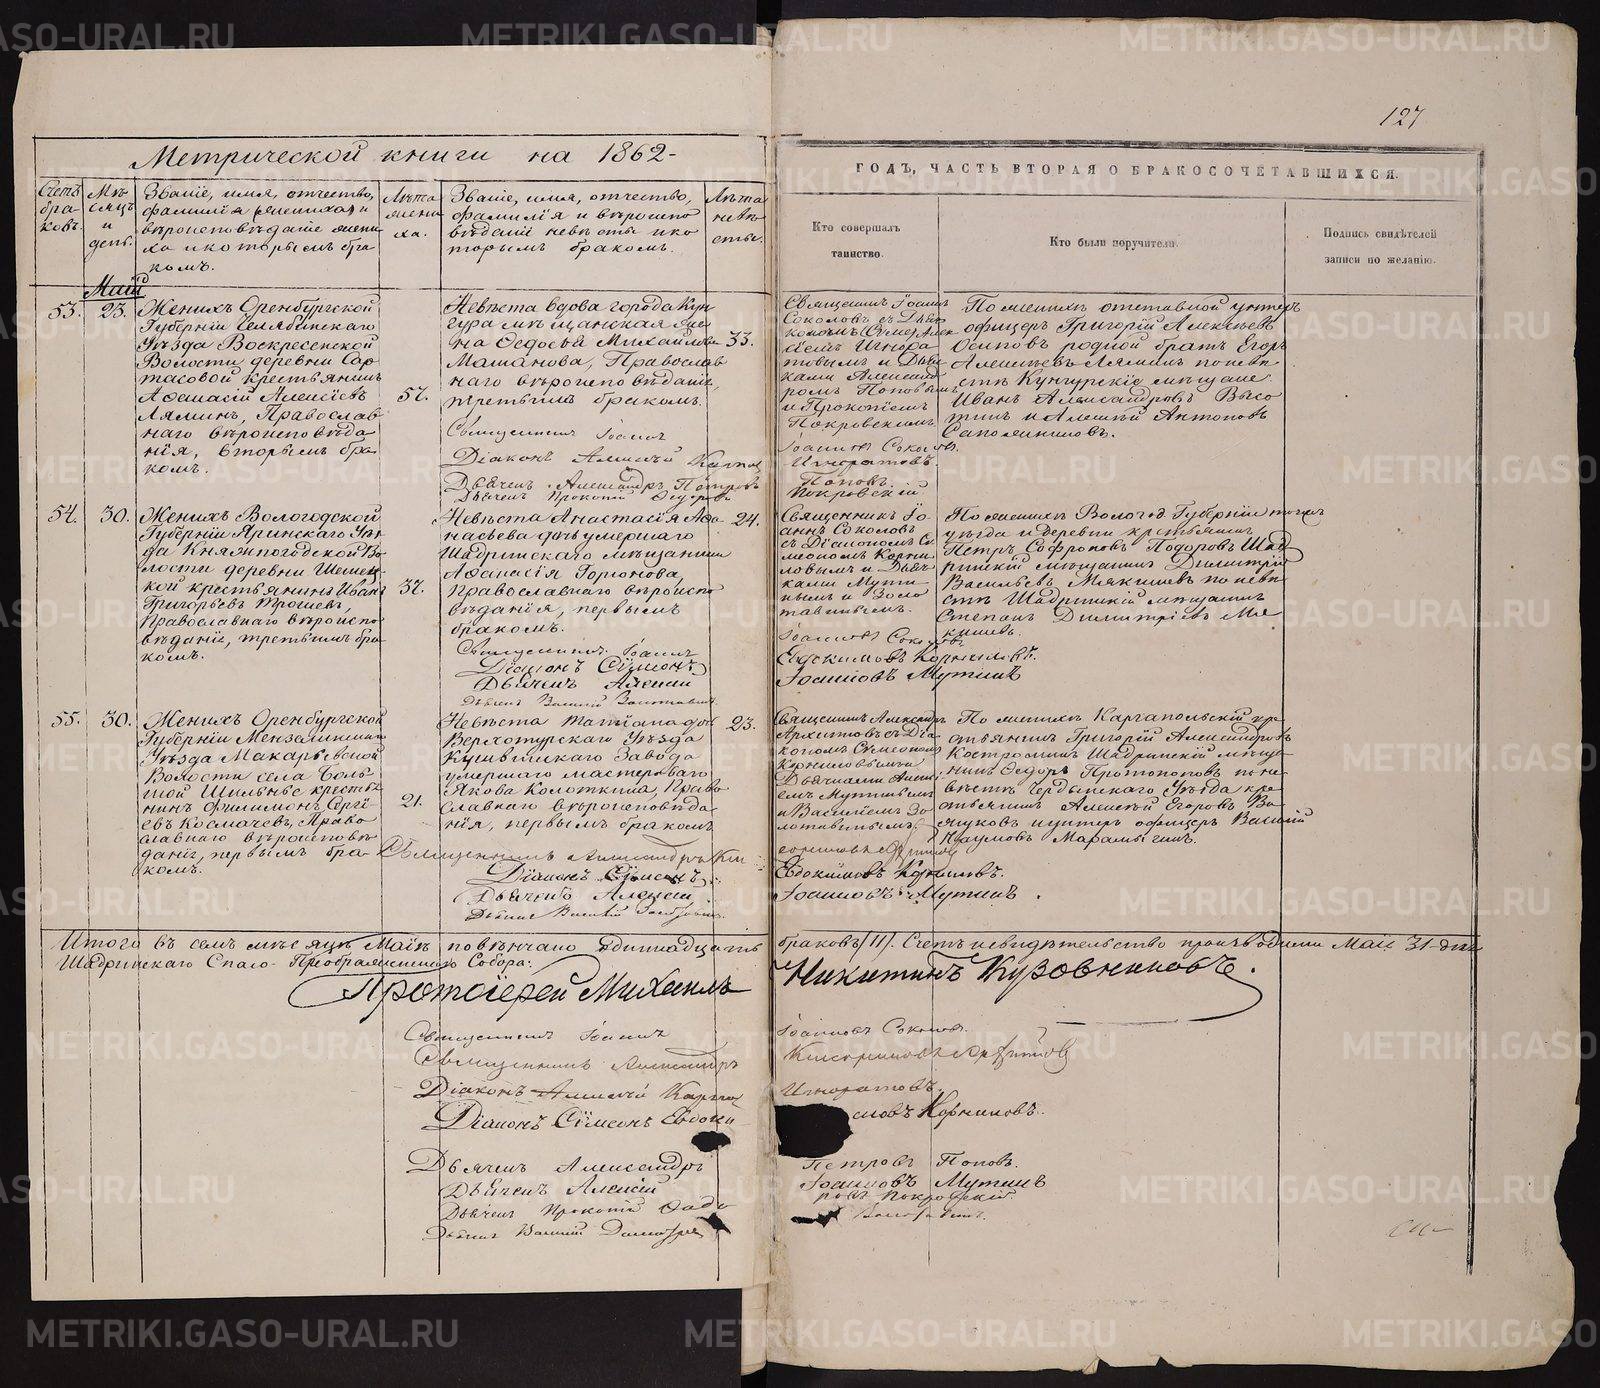 127
Метрической книги на 1862-
ГОДЪ, ЧАСТЬ ВТОРАЯ О БРАКОСОЧЕТАВШИХСЯ.
Счетъ
бра-
ковъ.
Мѣ-
сяцъ
и
день.
Званіе, имя, отчество,
фамилія жениха и
вѣроисповѣданіе жени-
ха и которымъ бра-
комъ.
Лѣта
жени-
ха.
Званіе, имя, отчество,
фамилія и вѣроиспо-
вѣданіе невѣсты и ко-
торымъ бракомъ.
Лѣта
невѣ-
сты.
Кто совершалъ
таинство.
Кто были поручители.
Подпись свидѣтелей
записи по желанію.
Май
53.
23.
Женихъ Оренбургской
Губерніи Челябинскаго
Уѣзда Воскресенской
Волости деревни Сар-
тасовой крестьянинъ
Аѳанасій Алексѣевъ
Лямин, Православ-
наго вѣроисповѣда-
нія, вторымъ бра-
комъ.
57.
Невѣста вдова города Кун-
гура мѣщанская же-
на Ѳедосья Михайлова
Маманова, Православ-
наго вѣроисповѣданія,
третьимъ бракомъ.
33.
Священникъ Іоаннъ
Діаконъ Алексѣй
Дьячекъ Александръ Петровъ
Дьячекъ Прокопій Ѳедоровъ
Священникъ Іоаннъ
Соколовъ съ Діа-
кономъ Алек-
сѣемъ Игнора-
товымъ и Дьяч-
ками Александ-
ромъ Поповымъ
и Прокопіемъ
Покровскимъ
Іоанновъ Соколовъ.
Игноратовъ.
Поповъ.
Покровскій
По женихѣ отставной унтеръ
офицеръ Григорій Алексѣевъ
Осиповъ родной братъ Егоръ
Алексѣевъ Ляминъ по невѣ-
стѣ Кунгурскіе мѣщане
Иванъ Александровъ Высо-
тинъ и Алексѣй Антоновъ
Сапожниковъ.
54.
30.
Женихъ Вологодской
Губерніи Яринскаго Уѣз-
да Княжпогодской Во-
лости деревни
кой крестьянинъ Иванъ
Григорьевъ Трошевъ,
Православнаго вѣроиспо-
вѣданіе, третьимъ бра-
комъ.
37.
Невѣста Анастасія Аѳа-
насьева дочь умершаго
Шадринскаго мѣщанина
Аѳанасія Горюнова,
Православнаго вѣроиспо-
вѣданія, первымъ
бракомъ.
24.
Священникъ Іоаннъ
Діаконъ Сѵмеонъ
Дьячекъ Алексій
Дьячекъ Василій
Священникъ Іо-
аннъ Соколовъ
съ Діакономъ Си-
меономъ Корни-
ловымъ и Дьяч-
ками Мути-
нымъ и Золо-
тавинымъ.
Іоанновъ Соколовъ.
Евдокимовъ Корниловъ.
Іоанновъ Мутинъ
По женихѣ Вологод. Губерніи тогожъ
уѣзда и деревни крестьянинъ
Петръ Софроновъ Подоровъ Шад-
ринскій мѣщанинъ Димитрій
Васильевъ Мякишевъ по невѣ-
стѣ Шадринскій мѣщанинъ
Степанъ Димитріевъ Мя-
кишевъ.
55.
30.
Женихъ Оренбургской
Губерніи Мензелинскаго
Уѣзда Макарьевской
Волости села Боль-
шой Шильны крестья-
нинъ Филимонъ Сергі-
евъ Космачевъ, Право-
славнаго вѣроисповѣ-
даніе, первымъ бра-
комъ.
21.
Невѣста Татіана дочь
Верхотурскаго Уѣзда
Кушвинскаго Завода
умершаго мастероваго
Якова Колоткина, Право-
славнаго вѣроисповѣда-
нія, первымъ бракомъ
23.
Священникъ Александръ
Діаконъ Сѵмеонъ
Дьячекъ Алексій
Дьячекъ Василій
Священникъ Александръ
Арефитовъ съ Діа-
кономъ Симеономъ
Корниловымъ и
Дьячками Алексі-
емъ Мутинымъ
и Василіемъ Зо-
лотавинымъ.
Евдокимовъ Корниловъ.
Іоанновъ Мутинъ.
По женихѣ Каргапольскій кре-
стьянинъ Григорій Александровъ
Костроминъ Шадринскій мѣща-
нинъ Ѳедоръ Протопоповъ по не-
вѣстѣ Чердынскаго Уѣзда кре-
стьянинъ Алексѣй Егоровъ
и унтеръ офицеръ Василій
Наумовъ
Итого въ семъ мѣсяцѣ Маіѣ повѣнчано одиннадцать браковъ /11/. Счетъ и свидѣтельство производили Маія 31-дня
Шадринскаго Спасо-Преображенскаго Собора:
Протоіерей Михаилъ Никитинъ Кузовниковъ.
Священникъ Іоаннъ Іоанновъ Соколовъ.
Священникъ Александръ
Діаконъ Алексѣй Игноратовъ.
Діаконъ Сѵмеонъ Евдоки мовъ Корниловъ.
Дьячекъ Александръ Петровъ Поповъ.
Дьячекъ Алексій Іоанновъ Мутинъ
Дьячекъ Прокопій Покровскій.
Дьячекъ Василій
METRIKI.GASO-URAL.RU